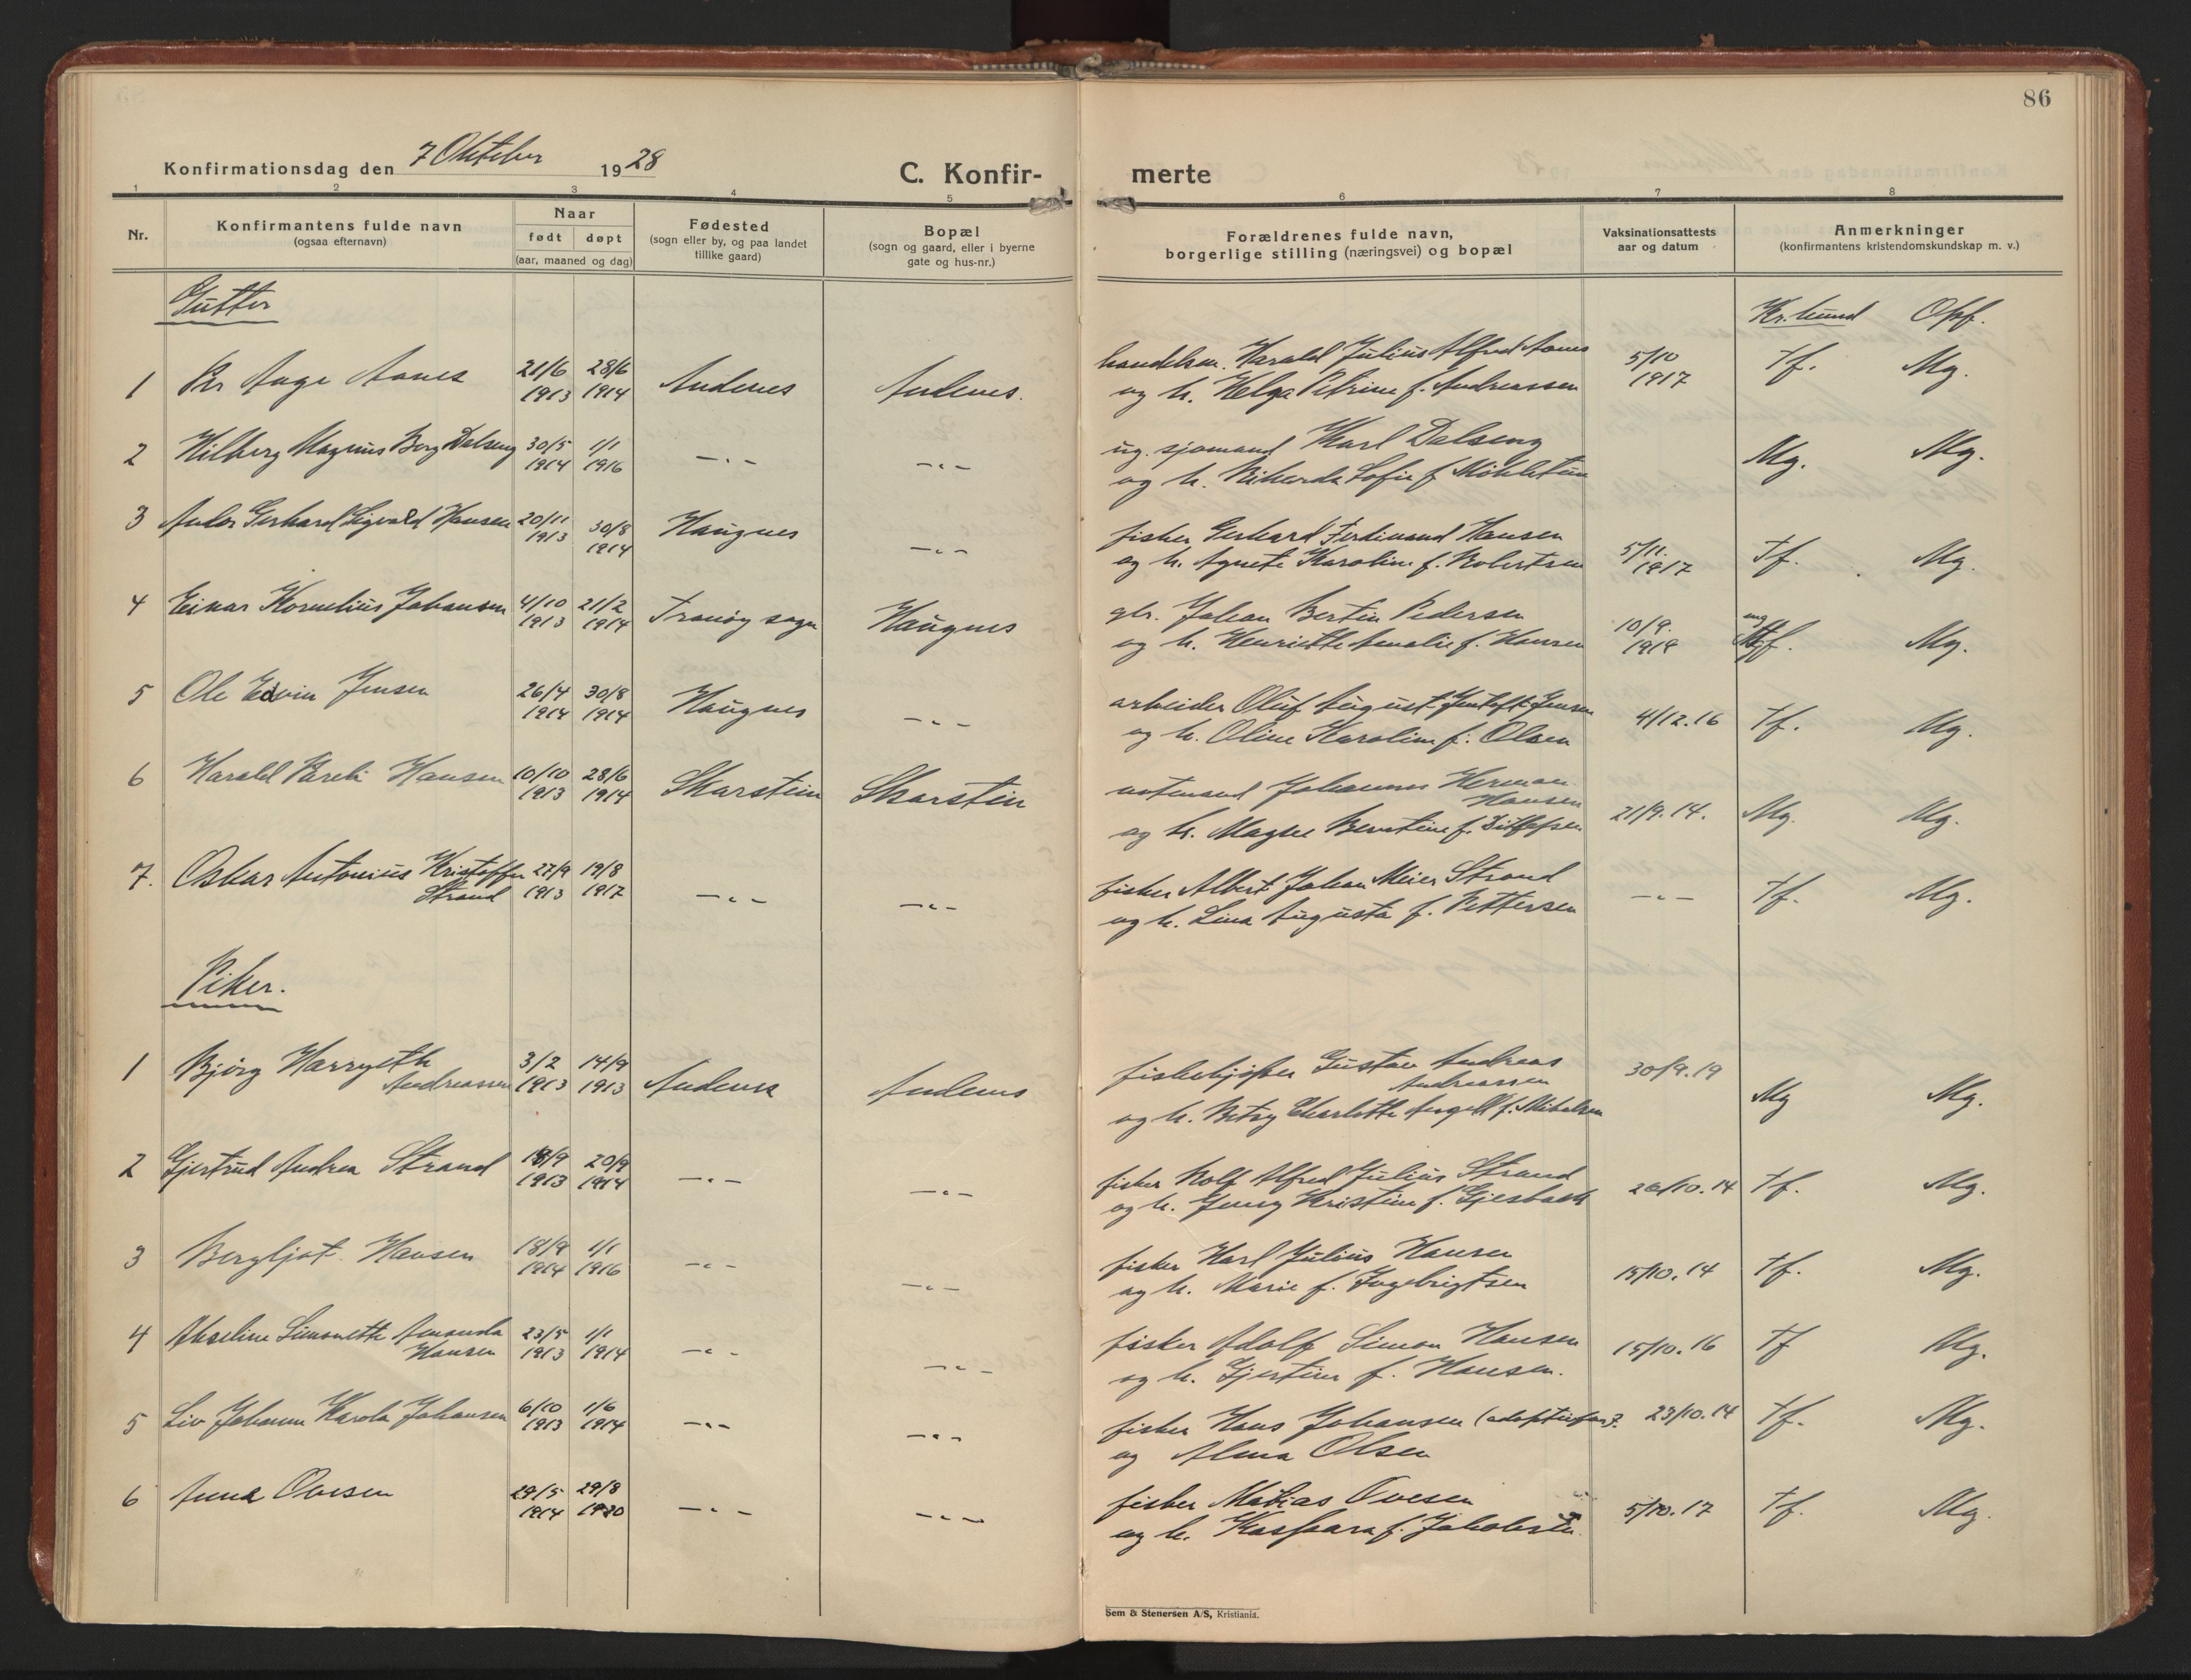 86
Konfirmationsdag den 7 Oktober 1928
C. Konfir- merte
1 2 3 4 5 6 7 8
Nr.
Konfirmantens fulde navn
(ogsaa efternavn)
Naar
født døpt
(aar, maaned og dag)
Fødested
(sogn eller by, og paa landet
tillike gaard)
Bopæl
(sogn og gaard, eller i byerne
gate og hus-nr.)
Forældrenes fulde navn,
borgerlige stilling (næringsvei) og bopæl
Vaksinationsattests
aar og datum
Anmerkninger
(konfirmantens kristendomskundskap m. v.)
Gutter
Kr. kund Opf.
1 Per Aage Aanes 21/6 1913 28/6 1914 Andenes Andenes.
handelsm. Harald Julius Alfred Aanes
og h. Helga Petrine f. Andreassen
5/10 1917 Tf. Mg.
2 Hilberg Magnus Borg Dalseng 30/5 1914 1/1 1916 -„- -„-
ug. sjømand Karl Dalseng
og h. Rikarda Sofie f.
Mg. Mg.
3 Gerhard Sigvald Hansen 20/11 1913 30/8 1914 Haugnes -„-
fisker Gerhard Ferdinand Hansen
og h. Agnete Karoline f. Robertsen
5/11. 1917 Tf. Mg.
4 Einar Kornelius Johansen 4/10 1913 21/2 1914 Tranøy sogn Haugnes
gbr. Johan Bertin Pedersen
og h. Henriette Amalie f. Hansen
10/9. Mg.
5 Ole Edvin Jensen 26/4 1914 30/8 1914 Haugnes -„-
arbeider Oluf August Jentoft Jensen
og h. Oline Karoline f. Olsen
4/12.16 Tf. Mg.
6 Harald Hansen 10/10 1913 28/6 1914 Skarstein Skarstein
notmand Johannes Herman
Hansen
og h. Bentine f.
21/9.14. Mg. Mg.
7. Oskar Antonius Kristoffer
Strand 27/9 1913 19/8 1917 -„- -„-
fisker Albert Johan Meier Strand
og h. Lina Augusta f. Pettersen
-„- Tf. Mg.
Piker.
1 Bjørg Harryeth
Andreassen 3/2 1913 14/9 1913 Andenes Andenes
Gustav Andreas
Andreassen
og h. Betsy Charlotte Angell f. Mikelsen
30/9.19 Mg Mg.
2 Gjertrud Andrea Strand 18/9 1913 20/9 1914 -„- -„-
fisker Rolf Alfred Julius Strand
og h. Jenny Kristine f. Gjesbakk
26/10.14 Tf. Mg.
3 Bergljot Hansen 18/9 1914 1/1 1916 -„- -„-
fisker Karl Julius Hansen
og h. Marie f. Ingebrigtsen
15/10.14 Tf. Mg.
4 Akseline Simonette Amanda
Hansen 23/5 1913 1/1 1914 -„- -„-
fisker Adolf Simon Hansen
og h. Gjertine f. Hansen.
15/10.16 Tf Mg.
5 Liv Johanne Karola Johansen 6/10 1913 1/6 1914 -„- -„-
fisker Hans Johansen
og Alma Olsen
23/10.14 Tf. Mg.
6 Anna Ovesen 29/5 1914 29/8 1920 -„- -„-
fisker Matias Ovesen
og h. Kaspara f. Jakobsen
5/10.17 Tf. Mg.
Sem & Stenersen A/S, Kristiania.